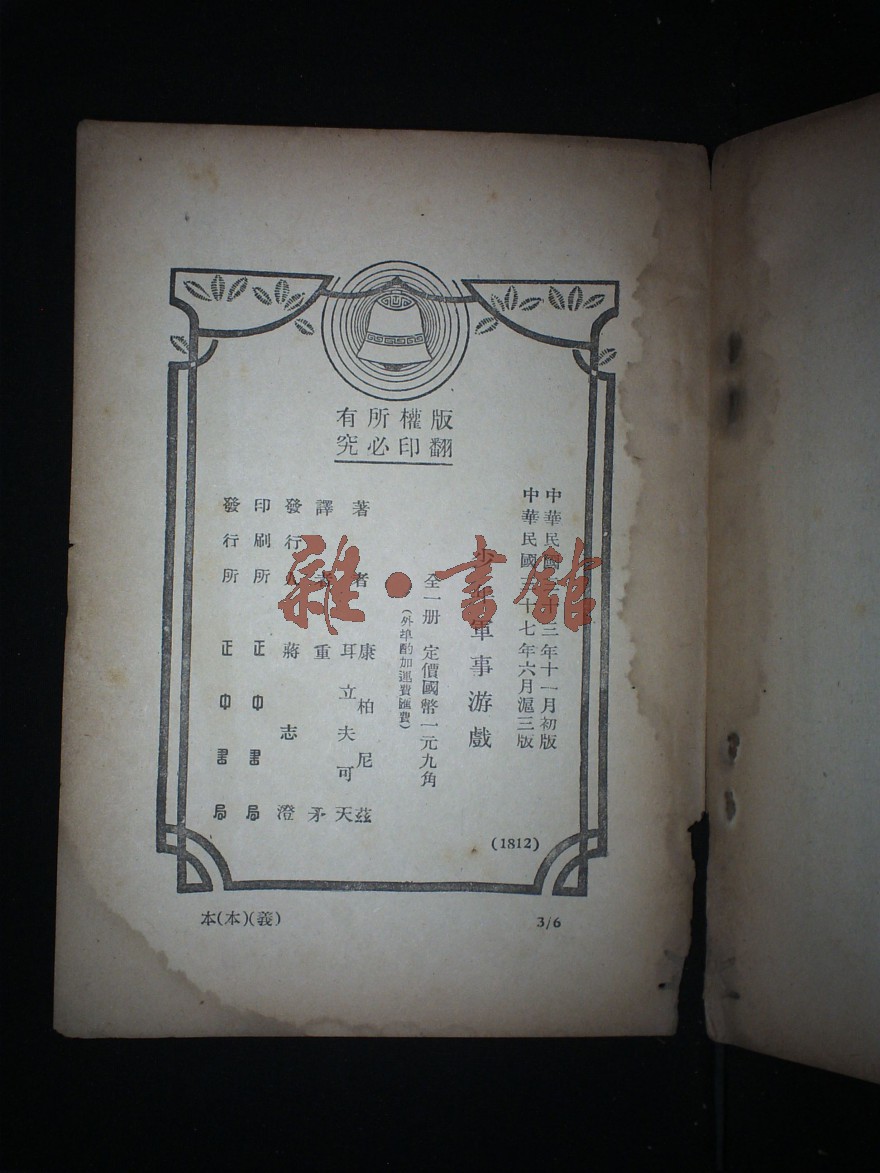 版權所有
翻印必究
中華民國三十三年十一月初版
中華民國三十七年六月滬三版
少年軍事游戲
全一册 定價國幣一元九角
(外埠酌加運費匯費)
著者 康柏尼茲
耳立夫可天
譯者 重矛
發行人 蔣志澄
印刷所 正中書局
發行所 正中書局
(1812)
本(本)(義)
3/6
雜·書館